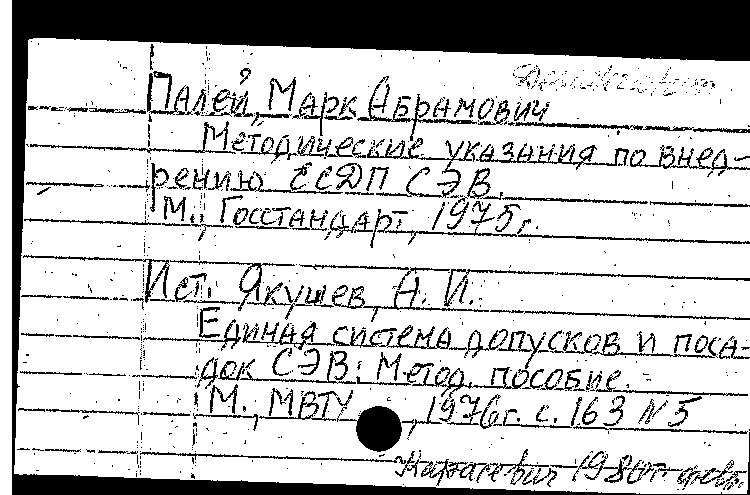 Палей, Марк Абрамович
Методические указания по внед-
рению ЕСДП СЭВ.
М., Госстандарт, 1975г.
Ист. Якушев, А. И.
Единая система допусков и поса-
док СЭВ: Метод. пособие.
М., МВТУ, 1976г. с. 163 №5
Карасевич 1980г. февр.